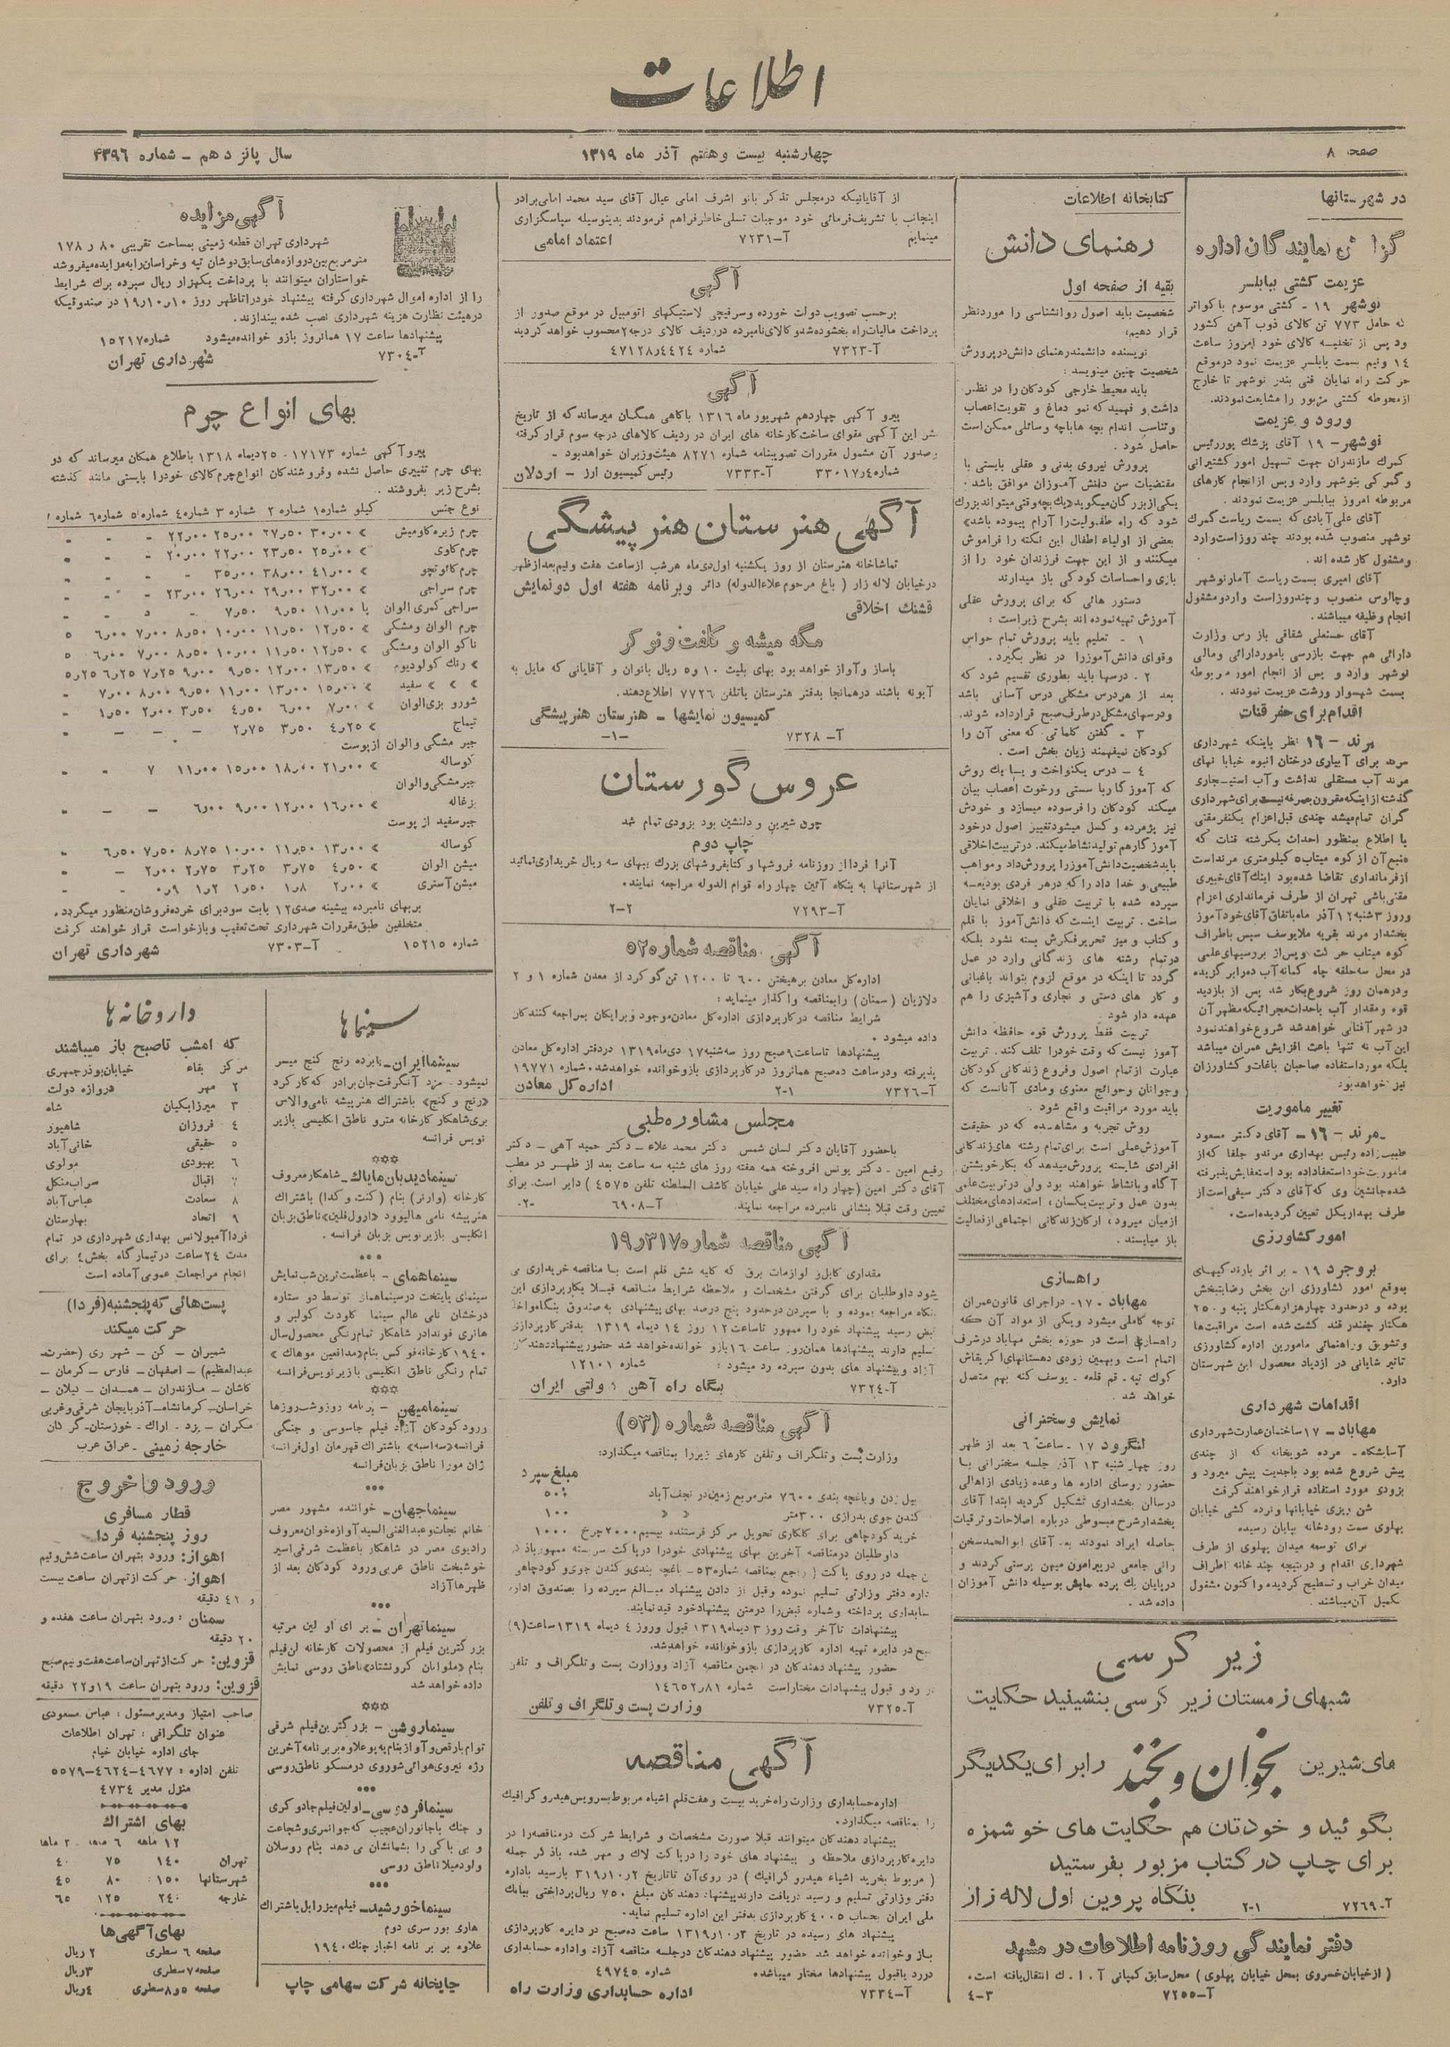 اطلاعات
صفحه ۸
چهارشنبه بیست و هفتم آذر ماه ۱۳۱۹
سال پانزدهم – شماره ۴۳۹۶
در شهرستانها
گزارش نمایندگان اداره
عزیمت کشتی ببابلسر
نوشهر ۱۹ – کشتی موسوم باکواتر
که حامل ۷۷۳ تن کالای ذوب آهن کشور
ود پس از تخلیه کالای خود امروز ساعت
۱۴ ونیم بسمت بابلسر عزیمت نمود درموقع
حرکت راه نمایان فنی بندر نوشهر تا خارج
ازمحوطه کشتی مزبور را مشایعت نمودند.
ورود و عزیمت
نوشهر – ۱۹ آقای پزشک پور رئیس
گمرک مازندران جهت تسهیل امور کشتیرانی
وگمرکی بنوشهر وارد وپس ازانجام کارهای
مربوطه امروز ببابلسر عزیمت نمودند.
آقای علی آبادی که بسمت ریاست گمرک
نوشهر منصوب شده بودند چند روزاست وارد
ومشغول کار شده اند.
آقای امیری بسمت ریاست آمار نوشهر
وچالوس منصوب وچندروزاست وارد ومشغول
انجام وظیفه میباشند.
آقای حسنعلی شقاقی باز رس وزارت
دارائی هم جهت بازرسی بامور دارائی ومالی
نوشهر وارد و پس از انجام امور مربوطه
بسمت شهسوار ورشت عزیمت نمودند.
اقدام برای حفر قنات
مرند – ۱۶ نظر باینکه شهرداری
مرند برای آبیاری درختان انبوه خیابا نهای
مرند آب مستقلی نداشت وآب استیجاری
گذشته ازاینکه مقرون بصرفه نیست برای شهرداری
گران تمام میشد چندی قبل اعزام یکنفر مقنی
با اطلاع بمنظور احداث یکرشته قنات که
منبع آن از کوه میتاب ۵ کیلومتری مرند است
ازفرمانداری تقاضا شده بود اینک آقای خبیری
مقنی باشی تهران از طرف فرمانداری اعزام
وروز ۳شنبه ۱۲ آذر ماه باتفاق آقای خودآموز
بخشدار مرند بقریه ملایوسف سپس باطراف
کوه میتاب حرکت وپس از بررسیهای علمی
در محل سه حلقه چاه کمانه آب ده را برگزیده
ودرهمان روز شروع بکار شد پس از بازدید
قوه و مقدار آب باحداث مجرائیکه مظهر آن
در شهر آفتابی خواهد شد شروع خواهند نمود
این آب نه تنها باعث افزایش عمران میباشد
بلکه مورد استفاده صاحبان باغات و کشاورزان
نیز خواهد بود
تغییر ماموریت
مرند – ۱۶ – آقای دکتر مسعود
طبیب زاده رئیس بهداری مرند و جلفا که از
ماموریت خود استعفا داده بود استعفایش پذیرفته
شده جانشین وی که آقای دکتر سیفی است از
طرف بهداریکل تعیین گردیده است.
امور کشاورزی
بروجرد ۱۹ – بر اثر بارندگیهای
بموقع امور کشاورزی این بخش رضایتبخش
بوده و درحدود چهارهزار هکتار پنبه و ۲۵۰
هکتار چغندر قند کشت شده است مراقبت‌ها
وتشویق وراهنمائی مامورین اداره کشاورزی
تاثیر شایانی در ازدیاد محصول این شهرستان
دارد.
اقدامات شهرداری
مهاباد – ۱۷ ساختمان عمارت شهرداری
آسایشگاه – مرده شویخانه که از چندی
پیش شروع شده بود باجدیت پیش میرود و
بزودی مورد استفاده قرار خواهند گرفت
شن ریزی خیابانها ونرده کشی خیابان
پهلوی سمت رودخانه بپایان رسیده
برای توسعه میدان پهلوی از طرف
شهرداری اقدام و درنتیجه چند خانه اطراف
میدان خراب و تسطیح گردیده واکنون مشغول
تکمیل آن میباشند.
کتابخانه اطلاعات
رهنمای دانش
بقیه از صفحه اول
شخصیت باید اصول روانشناسی را موردنظر
قرار دهیم؛
نویسنده دانشمند رهنمای دانش درپرورش
شخصیت چنین مینویسد:
باید محیط خارجی کودکان را در نظر
داشت و فهمید که نمو دماغ و تقویت اعصاب
وتناسب اندام بچه هاباچه وسائلی ممکن است
حاصل شود.
پرورش نیروی بدنی و عقلی بایستی با
مقتضیات سن دانش آموزان موافق باشد؛
یکی از بزرگان میگوید «یک بچه وقتی میتواند بزرگ
شود که راه طفولیت را آرام پیموده باشد»
بعضی از اولیاء اطفال این نکته را فراموش
میکنند و از این جهت فرزندان خود را از
بازی واحساسات کودکی باز میدارند
دستور هائی که برای پرورش عقلی
آموزش تهیه نموده اند بشرح زیر است:
۱ – تعلیم باید پرورش تمام حواس
وقوای دانش آموزرا در نظر بگیرد.
۲ – درسها باید بطوری تقسیم شود که
بعد از هر درس مشکلی درس آسانی باشد
ودرسهای مشکل درطرف صبح قرار داده شوند.
۳ – گفتن کلماتی که معنی آن را
کودکان نمیفهمند زیان بخش است.
۴ – درس یکنواخت و یا یک روش
که آموزگاربا سستی ورخوت اعصاب بیان
میکند کودکان را فرسوده میسازد و خودش
نیز پژمرده و کسل میشود تغییر اصول درخود
آموزگارهم تولید نشاط میکند. درتربیت اخلاقی
باید شخصیت دانش آموز را پرورش داد و مواهب
طبیعی و خدا داد را که در هر فردی بودیعه
سپرده شده با تربیت عقلی و اخلاقی نمایان
ساخت. تربیت اینست که دانش آموز با قلم
وکتاب و میز تحریر فکرش بسته نشود بلکه
درتمام رشته های زندگانی وارد در عمل
گردد تا اینکه در موقع لزوم بتواند باغبانی
و کار های دستی و نجاری و آشپزی را هم
عهده دار شود.
تربیت فقط پرورش قوه حافظه دانش
آموز نیست که وقت خودرا تلف کند. تربیت
عبارت ازتمام اصول وفروع زندگانی کودکان
وجوانان وحوائج معنوی ومادی آنانست که
باید مورد مراقبت واقع شود.
روش تجربه و مشاهده که در حقیقت
آموزش عملی است برای تمام رشته های زندگانی
افرادی شایسته پرورش میدهد که بکار خویشتن
آگاه وبانشاط خواهند بود ولی درتربیت علمی
بدون عمل وتربیت یکسان؛ استعدادهای مختلف
ازمیان میرود؛ ارکان زندگانی اجتماعی از فعالیت
باز میایستد.
راهسازی
مهاباد ۱۷– دراجرای قانون عمران
توجه کاملی میشود ویکی از مواد آن که
راهسازی است در حوزه بخش مهاباد درشرف
اتمام است وبهمین زودی دهستانهای اگریقاش
کوک تپه. قم قلعه. یوسف کنه بهم متصل
خواهد شد.
نمایش و سخنرانی
لنگرود ۱۷ – ساعت ۶ بعد از ظهر
روز چهارشنبه ۱۳ آذر جلسه سخنرانی با
حضور روسای اداره ها وعده زیادی ازاهالی
درسالن بخشداری تشکیل گردید ابتدا آقای
بخشدار شرح مبسوطی درباره اصلاحات وترقیات
حاصله ایراد نمودند بعد آقای ابوالحمد سخن
رانی جامعی درپیرامون میهن پرستی کردند و
درپایان یک پرده نمایش بوسیله دانش آموزان
داده شد.
زیر کرسی
شبهای زمستان زیر کرسی بنشینید حکایت
های شیرین بخوان و بخند را برای یکدیگر
بگوئید و خودتان هم حکایت های خوشمزه
برای چاپ در کتاب مزبور بفرستید
بنگاه پروین اول لاله زار
آ–۷۲۶۹ ۱–۲
دفتر نمایندگی روزنامه اطلاعات در مشهد
( از خیابان خسروی بمحل خیابان پهلوی ) محل سابق کمپانی آ. ا. ک انتقال یافته است.
آ–۷۲۵۵ ۳–۴
از آقایانیکه درمجلس تذکر بانو اشرف امامی عیال آقای سید محمد امامی برادر
اینجانب با تشریف فرمائی خود موجبات تسلی خاطر فراهم فرمودند بدینوسیله سپاسگزاری
مینمایم آ–۷۲۳۱ اعتماد امامی
آگهی
برحسب تصویب دولت خورده وسرقیچی لاستیکهای اتومبیل در موقع صدور از
پرداخت مالیات راه بخشوده شد و کالای نامبرده در ردیف کالای درجه ۲ محسوب خواهد گردید
آ–۷۳۲۳ شماره ۴۷۱۲۸ر۴۴۲۴
آگهی
پیرو آگهی چهاردهم شهریور ماه ۱۳۱۶ باگاهی همگان میرساند که از تاریخ
نشر این آگهی مقوای ساخت کارخانه های ایران در ردیف کالاهای درجه سوم قرار گرفته
وصدور آن مشمول مقررات تصویبنامه شماره ۸۲۷۱ هیئت وزیران خواهد بود.
شماره ۳۳۰۱۷ر۴ آ–۷۳۳۳ رئیس کمیسیون ارز – اردلان
آگهی هنرستان هنرپیشگی
تماشاخانه هنرستان از روز یکشنبه اول دی ماه هر شب از ساعت هفت ونیم بعد از ظهر
درخیابان لاله زار ( باغ مرحوم علاءالدوله) دائر وبرنامه هفته اول دو نمایش
قشنگ اخلاقی
مگه میشه و کلفت و نوکر
باساز و آواز خواهد بود بهای بلیت ۱۰ و ۵ ریال بانوان و آقایانی که مایل به
آبونه باشند درهمانجا بدفتر هنرستان یا تلفن ۷۷۲۶ اطلاع دهند.
کمیسیون نمایشها – هنرستان هنرپیشگی
آ– ۷۳۲۸ –۱–
عروس گورستان
چون شیرین و دلنشین بود بزودی تمام شد
چاپ دوم
آنرا فردا از روزنامه فروشها و کتابفروشهای بزرگ ببهای سه ریال خریداری نمائید
از شهرستانها به بنگاه آئین چهار راه قوام الدوله مراجعه نمایند.
آ–۷۲۹۳ ۲–۲
آگهی مناقصه شماره ۵۲
اداره کل معادن برهیختن ۶۰۰ تا ۱۲۰۰ تن گوگرد از معدن شماره ۱ و ۲
دلازیان (سمنان) را بمناقصه واگذار مینماید:
شرایط مناقصه در کارپردازی اداره کل معادن موجود و برایگان بمراجعه کنندگان
داده میشود.
پیشنهادها تا ساعت ۹ صبح روز سه شنبه ۱۷ دی ماه ۱۳۱۹ در دفتر اداره کل معادن
پذیرفته ودر ساعت ده صبح همانروز در کارپردازی باز و خوانده خواهد شد. شماره ۱۹۷۷۱
آ–۷۳۲۶ ۱–۲ اداره کل معادن
مجلس مشاوره طبی
باحضور آقایان دکتر لسان شمس دکتر محمد علاء – دکتر حمید آهی – دکتر
رفیع امین – دکتر یونس افروخته همه هفته روز های شنبه سه ساعت بعد از ظهر در مطب
آقای دکتر امین (چهار راه سید علی خیابان کاشف السلطنه تلفن ۴۵۷۵) دایر است. برای
تعیین وقت قبلا بنشانی نامبرده مراجعه نمایند. آ–۶۹۰۸ ۲۰–
آگهی مناقصه شماره ۳۱۷ر۱۹
مقداری کابل و لوازمات برق که کلیه شش قلم است با مناقصه خریداری می
شود داوطلبان برای گرفتن مشخصات و ملاحظه شرایط مناقصه قبلا بکارپردازی این
بنگاه مراجعه نموده و با سپردن درحدود پنج درصد بهای پیشنهادی به صندوق بنگاه واخذ
قبض رسید پیشنهاد خود را ممهور تا ساعت ۱۲ روز ۱۴ دیماه ۱۳۱۹ بدفتر کارپردازی
تسلیم دارند پیشنهادها همان روز ساعت ۱۶ باز و خوانده خواهد شد حضور پیشنهاد دهندگان
آزاد و پیشنهاد های بدون سپرده رد میشود: شماره ۱۲۱۰۱
آ–۷۳۲۴ بنگاه راه آهن دولتی ایران
آگهی مناقصه شماره (۵۳)
وزارت پست و تلگراف و تلفن کارهای زیر را بمناقصه میگذارد:
مبلغ سپرده
بیل زدن و باغچه بندی ۷۶۰۰ متر مربع زمین در نجف آباد ۵۰۰
کندن جوی بدرازی ۳۰۰ متر » » ۱۰۰
خرید کودچاهی برای گلکاری تحویل مرکز فرستنده بیسیم ۲۰۰۰ چرخ ۱۰۰۰
داوطلبان درمناقصه آخرین بهای پیشنهادی خودرا درپاکت سربسته ممهور با ذکر
این جمله در روی پاکت (راجع بمناقصه شماره ۵۳– باغچه بندی و کندن جوی و کودچاهی
اداره دفتر وزارتی تسلیم نموده وقبل از دادن پیشنهاد مبالغ سپرده را بصندوق اداره
حسابداری پرداخته وشماره قبض را درمتن پیشنهاد خود قید نمایند.
پیشنهادات تا آخر وقت روز ۳ دیماه ۱۳۱۹ قبول و روز ۴ دیماه ۱۳۱۹ ساعت (۹)
صبح در دایره تهیه اداره کارپردازی باز و خوانده خواهد شد.
حضور پیشنهاد دهندگان در انجمن مناقصه آزاد ووزارت پست و تلگراف و تلفن
در رد و قبول پیشنهادات مختار است شماره ۱۴۶۵۲ر۸۱
آ–۷۳۲۵ وزارت پست و تلگراف و تلفن
آگهی مناقصه
اداره حسابداری وزارت راه خرید بیست و هفت قلم اشیاء مربوط بسرویس هیدروگرافیک
را بمناقصه میگذارد.
پیشنهاد دهندگان میتوانند قبلا صورت مشخصات و شرایط شرکت در مناقصه را در
دایره کارپردازی ملاحظه و پیشنهاد های خود را درپاکت لاک و مهر شده باذکر جمله
( مربوط بخرید اشیاء هیدروگرافیک ) در روی آن تا تاریخ ۲ر۱۰ر۳۱۹ بارسید باداره
دفتر وزارتی تسلیم و رسید دریافت دارند پیشنهاد دهندگان مبلغ ۷۵۰ ریال پرداختی ببانک
ملی ایران بحساب ۴۰۰۵ کارپردازی بدفتر این اداره تسلیم نماید.
پیشنهاد های رسیده در تاریخ ۳ر۱۰ر۱۳۱۹ ساعت ده صبح در دایره کارپردازی
باز و خوانده خواهد شد حضور پیشنهاد دهندگان درجلسه مناقصه آزاد و اداره حسابداری
در رد یا قبول پیشنهادها مختار میباشد. شماره ۴۹۷۴۵
آ–۷۳۳۴ اداره حسابداری وزارت راه
آگهی مزایده
شهرداری تهران قطعه زمینی بمساحت تقریبی ۸۰ر۱۷۸
متر مربع بین دروازه های سابق دوشان تپه و خراسان را به مزایده میفروشد
خواستاران میتوانند با پرداخت یکهزار ریال سپرده برگ شرایط
را از اداره اموال شهرداری گرفته پیشنهاد خود را تا ظهر روز ۱۰ر۱۰ر۱۹ در صندوقیکه
در هیئت نظارت هزینه شهرداری نصب شده بیندازند.
پیشنهادها ساعت ۱۷ همانروز باز و خوانده میشود شماره ۱۵۲۱۷
آ–۷۳۰۴ شهرداری تهران
بهای انواع چرم
پیرو آگهی شماره ۱۷۱۷۳– ۲۵ دیماه ۱۳۱۸ باطلاع همگان میرساند که در
بهای چرم تغییری حاصل نشده وفروشندگان انواع چرم کالای خودرا بایستی مانند گذشته
بشرح زیر بفروشند.
نوع جنس کیلو شماره ۱ شماره ۲ شماره ۳ شماره ۴ شماره ۵ شماره ۶ شماره ۷
چرم زیره گاومیش » ۳۰٫۰۰ ۲۷٫۵۰ ۲۵٫۰۰ ۲۲٫۰۰ – – –
چرم گاوی » ۲۵٫۰۰ ۲۳٫۵۰ ۲۲٫۰۰ ۲۰٫۰۰ – – –
چرم کائوتچو » ۴۱٫۰۰ ۳۸٫۰۰ ۳۵٫۰۰ – – –
چرم سراجی » ۳۲٫۰۰ ۲۹٫۰۰ ۲۶٫۰۰ ۲۳٫۰۰ – – –
سراجی کمری الوان پا ۱۱٫۰۰ ۹٫۵۰ ۷٫۵۰ – – –
چرم الوان ومشکی » ۱۲٫۵۰ ۱۱٫۵۰ ۱۰٫۰۰ ۸٫۵۰ ۷٫۰۰ ۶٫۰۰ ۵
ناکو الوان ومشکی » ۱۲٫۵۰ ۱۱٫۵۰ ۱۰٫۰۰ ۸٫۵۰ ۷٫۰۰ ۶٫۰۰ ۵
» رنگ کولودیوم » ۱۳٫۵۰ ۱۲٫۰۰ ۹٫۵۰ ۹٫۰۰ ۷٫۲۵ ۶٫۲۵ ۵٫۲۵
» » سفید » ۱۵٫۰۰ ۱۳٫۰۰ ۱۱٫۰۰ ۹٫۵۰ ۸٫۰۰ ۷٫۰۰ –
شورو بزی الوان » ۷٫۰۰ ۶٫۰۰ ۴٫۵۰ ۳٫۵۰ ۲٫۰۰ ۱٫۵۰ –
تیماج » ۴٫۲۵ ۳٫۵۰ ۲٫۷۵ – – – –
جیر مشگی والوان ازپوست
گوساله » ۲۱٫۰۰ ۱۸٫۰۰ ۱۵٫۰۰ ۱۱٫۰۰ ۷ – –
جیر مشگی والوان
بزغاله » ۱۶٫۰۰ ۱۲٫۰۰ ۹٫۰۰ ۶٫۰۰ – – –
جیر سفید از پوست
گوساله » ۱۳٫۰۰ ۱۱٫۵۰ ۱۰٫۰۰ ۸٫۷۵ ۷٫۵۰ ۶٫۵۰ –
میشن الوان » ۴٫۵۰ ۳٫۷۵ ۳٫۲۵ ۲٫۷۵ ۲٫۰۰ – –
میشن آستری » ۲٫۰۰ ۱٫۸ ۱٫۵۰ ۱٫۲ ۰٫۹ –
بر بهای نامبرده بیشینه صدی ۱۲ بابت سود برای خرده فروشان منظور میگردد.
متخلفین طبق مقررات شهرداری تحت تعقیب و بازخواست قرار خواهند گرفت
شماره ۱۵۲۱۵ آ–۷۳۰۳ شهرداری تهران
سینماها
سینما ایران – نابرده رنج گنج میسر
نمیشود – مزد آنگرفت جان برادر که کار کرد
«رنج و گنج» باشتراک هنرپیشه نامی والاس
بری شاهکار کارخانه مترو ناطق انگلیسی بازیر
نویس فرانسه
***
سینما دیدبان مایاک – شاهکار معروف
کارخانه (وارنر) بنام (کنت و گدا) باشتراک
هنرپیشه نامی هالیوود «ارول فلین» ناطق بزبان
انگلیسی بازیرنویس بزبان فرانسه.
***
سینماهمای – باعظمت ترین شب نمایش
سینمای پایتخت درسینماهمای توسط دو ستاره
درخشان نامی عالم سینما کلودت کولبر و
هانری فوندا در شاهکار تمام رنگی محصول سال
۱۹۴۰ کارخانه فوکس بنام «مدافعین موهاک»
تمام رنگی ناطق انگلیسی بازیرنویس فرانسه
***
سینمامیهن – برنامه روز و شب روزها
ورود کودکان آزاد فیلم جاسوسی و جنگی
فرانسه «سه اسبه» باشتراک قهرمان اول فرانسه
ژان مورا ناطق بزبان فرانسه
***
سینماجهان – خواننده مشهور مصر
خانم نجات وعبدالغنی السید آوازه خوان معروف
رادیوی مصر در شاهکار باعظمت شرقی اسیر
خوشبخت ناطق عربی ورود کودکان بعد از
ظهرها آزاد
***
سینماتهران – بر ای او لین مرتبه
بزرگترین فیلم از محصولات کارخانه لن فیلم
بنام «ملوانان کرونشتاد» ناطق روسی نمایش
داده خواهد شد
***
سینماروشن – بزرگترین فیلم شرقی
توام بارقص و آواز بنام یه یو علاوه بر برنامه آخرین
رژه نیروی هوائی شوروی درمسکو ناطق روسی
***
سینمافردوسی – اولین فیلم جادوگری
و جنگ باجانوران عجیب که جوانمردی و شجاعت
و بی باکی را بشما نشان می دهد بنام روسلان
ولودمیلا ناطق روسی
***
سینماخورشید – فیلم میزرابل باشتراک
هاری بور سری دوم
علاوه بر بر نامه اخبار جنگ ۱۹۴۰
چاپخانه شرکت سهامی چاپ
داروخانه‌ها
که امشب تا صبح باز میباشند
مرکز بقاء خیابان بوذرجمهری
۲ مهر دروازه دولت
۳ میرزایگیان شاه
۴ فروزان شاهپور
۵ حقیقی خانی آباد
۶ بهبودی مولوی
۷ اقبال سراب منگل
۸ سعادت عباس آباد
۹ اتحاد بهارستان
فردا آمبولانس بهداری شهرداری در تمام
مدت ۲۴ ساعت درتیمارگاه بخش ۴ برای
انجام مراجعات عمومی آماده است
پست هائی که پنجشنبه (فردا)
حرکت میکند
شمیران – کن – شهر ری (حضرت
عبدالعظیم) – اصفهان – فارس – کرمان –
کاشان – مازندران – همدان – گیلان –
خراسان – کرمانشاه – آذربایجان شرقی وغربی
مکران – یزد – اراک – خوزستان – گرگان
خارجه زمینی – عراق عرب
ورود و اخروج
قطار مسافری
روز پنجشنبه فردا
اهواز: ورود بتهران ساعت شش ونیم
اهواز. حرکت از تهران ساعت بیست
و ۴۱ دقیقه
سمنان: ورود بتهران ساعت هفده و
۲۰ دقیقه
قزوین: حرکت از تهران ساعت هفت ونیم صبح
قزوین: ورود بتهران ساعت ۱۹ و ۲۲ دقیقه
صاحب امتیاز ومدیر مسئول: عباس مسعودی
عنوان تلگرافی: تهران اطلاعات
جای اداره خیابان خیام
تلفن اداره: ۴۶۷۷–۴۶۲۴–۵۵۷۹
منزل مدیر ۴۷۳۴
بهای اشتراک
۱۲ ماهه ۶ ماهه ۳ ماهه
تهران ۱۴۰ ۷۵ ۴۰
شهرستانها ۱۵۰ ۸۰ ۴۵
خارجه ۲۴۰ ۱۲۵ ۶۵
بهای آگهی ها
صفحه ۶ سطری ۲ ریال
صفحه ۷ سطری ۳ ریال
صفحه ۵ و ۸ سطری ۴ ریال